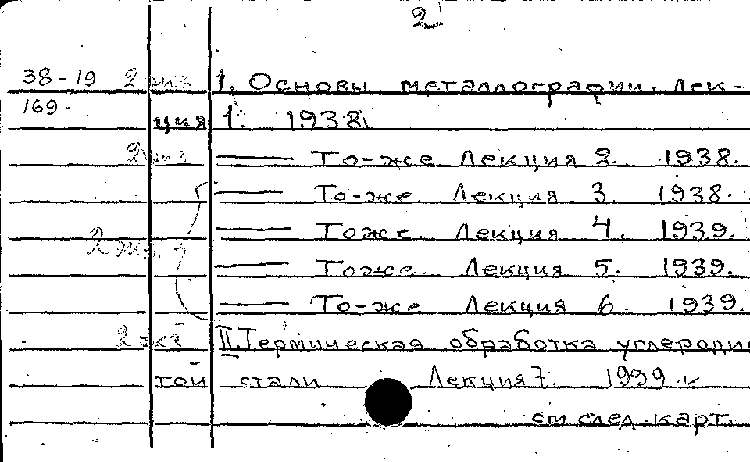 2
38-19 2 экз I. Основы металлографии. Лек-
169. ция 1. 1938.
2 экз —— То-же Лекция 2. 1938.
—— То-же Лекция 3. 1938.
—— Тоже Лекция 4. 1939.
2 экз. —— Тоже Лекция 5. 1939.
—— То-же Лекция 6. 1939.
2 экз II Термическая обработка углероди
той стали Лекция 7. 1939.
см след. карт.